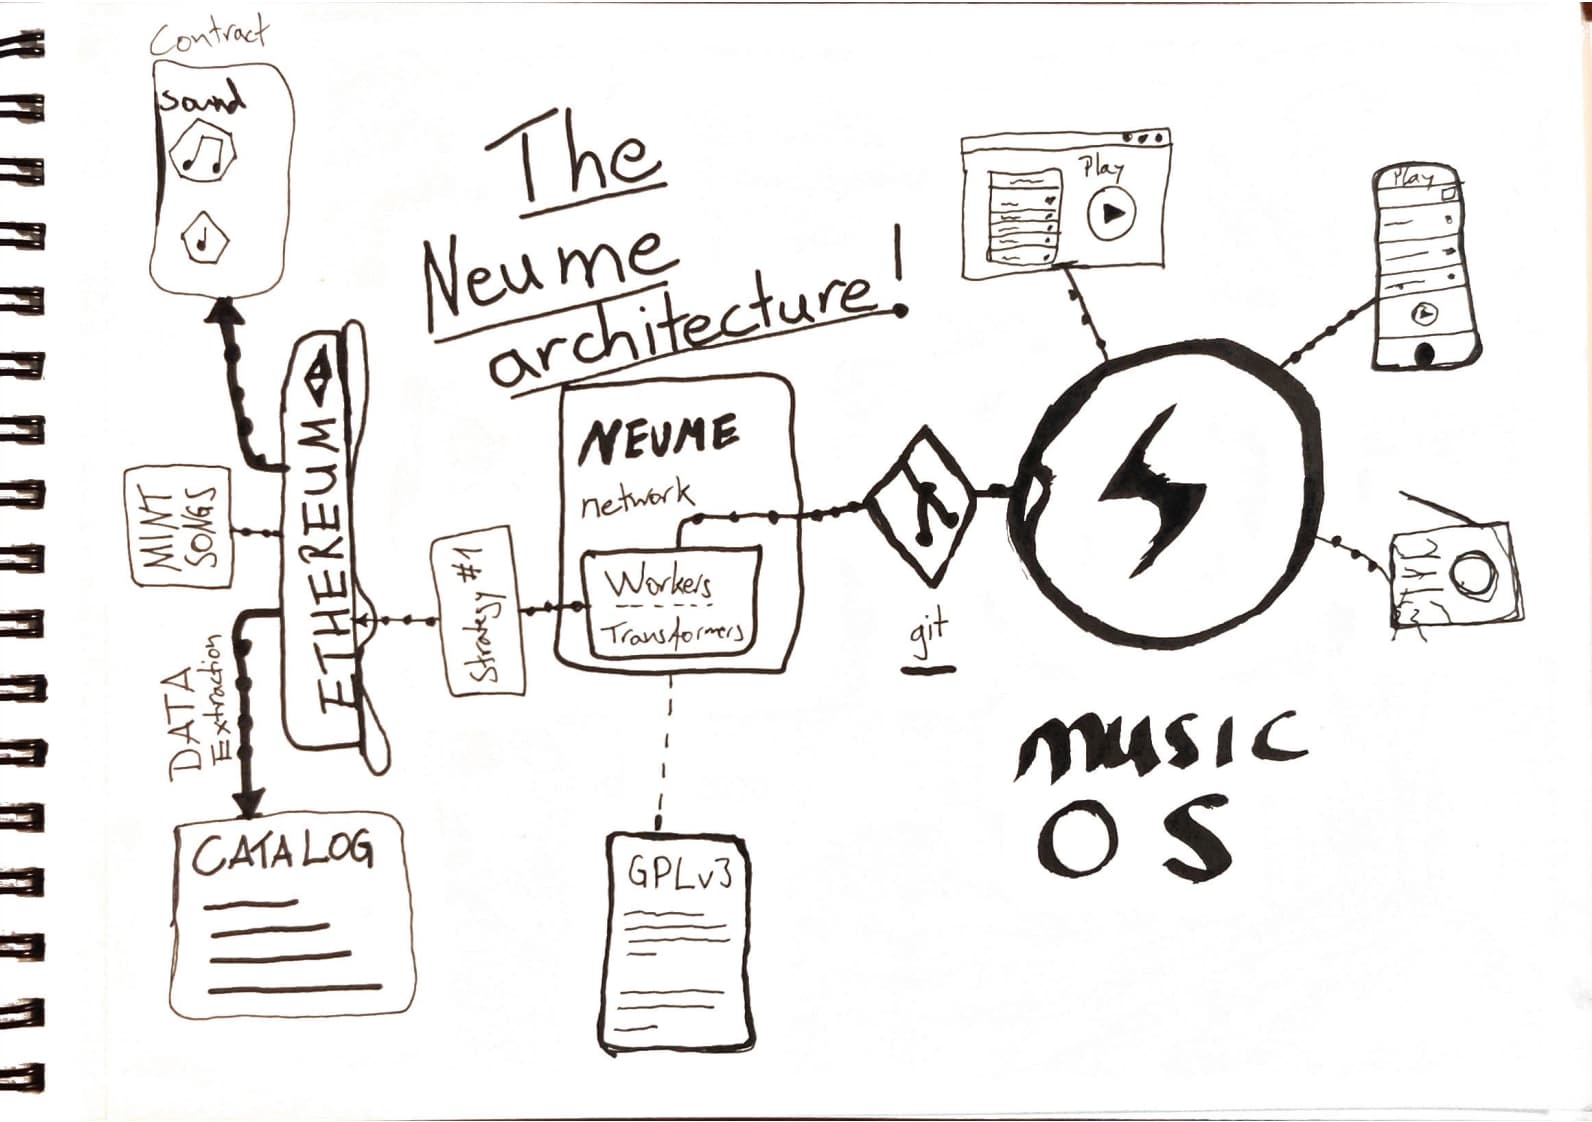 Contract
Sound
The
Neume
architecture!
MINT
SONGS
ETHEREUM
DATA
Extraction
CATALOG
Strategy #1
NEUME
network
Workers
Transformers
GPLv3
git
Play
Play
music
OS